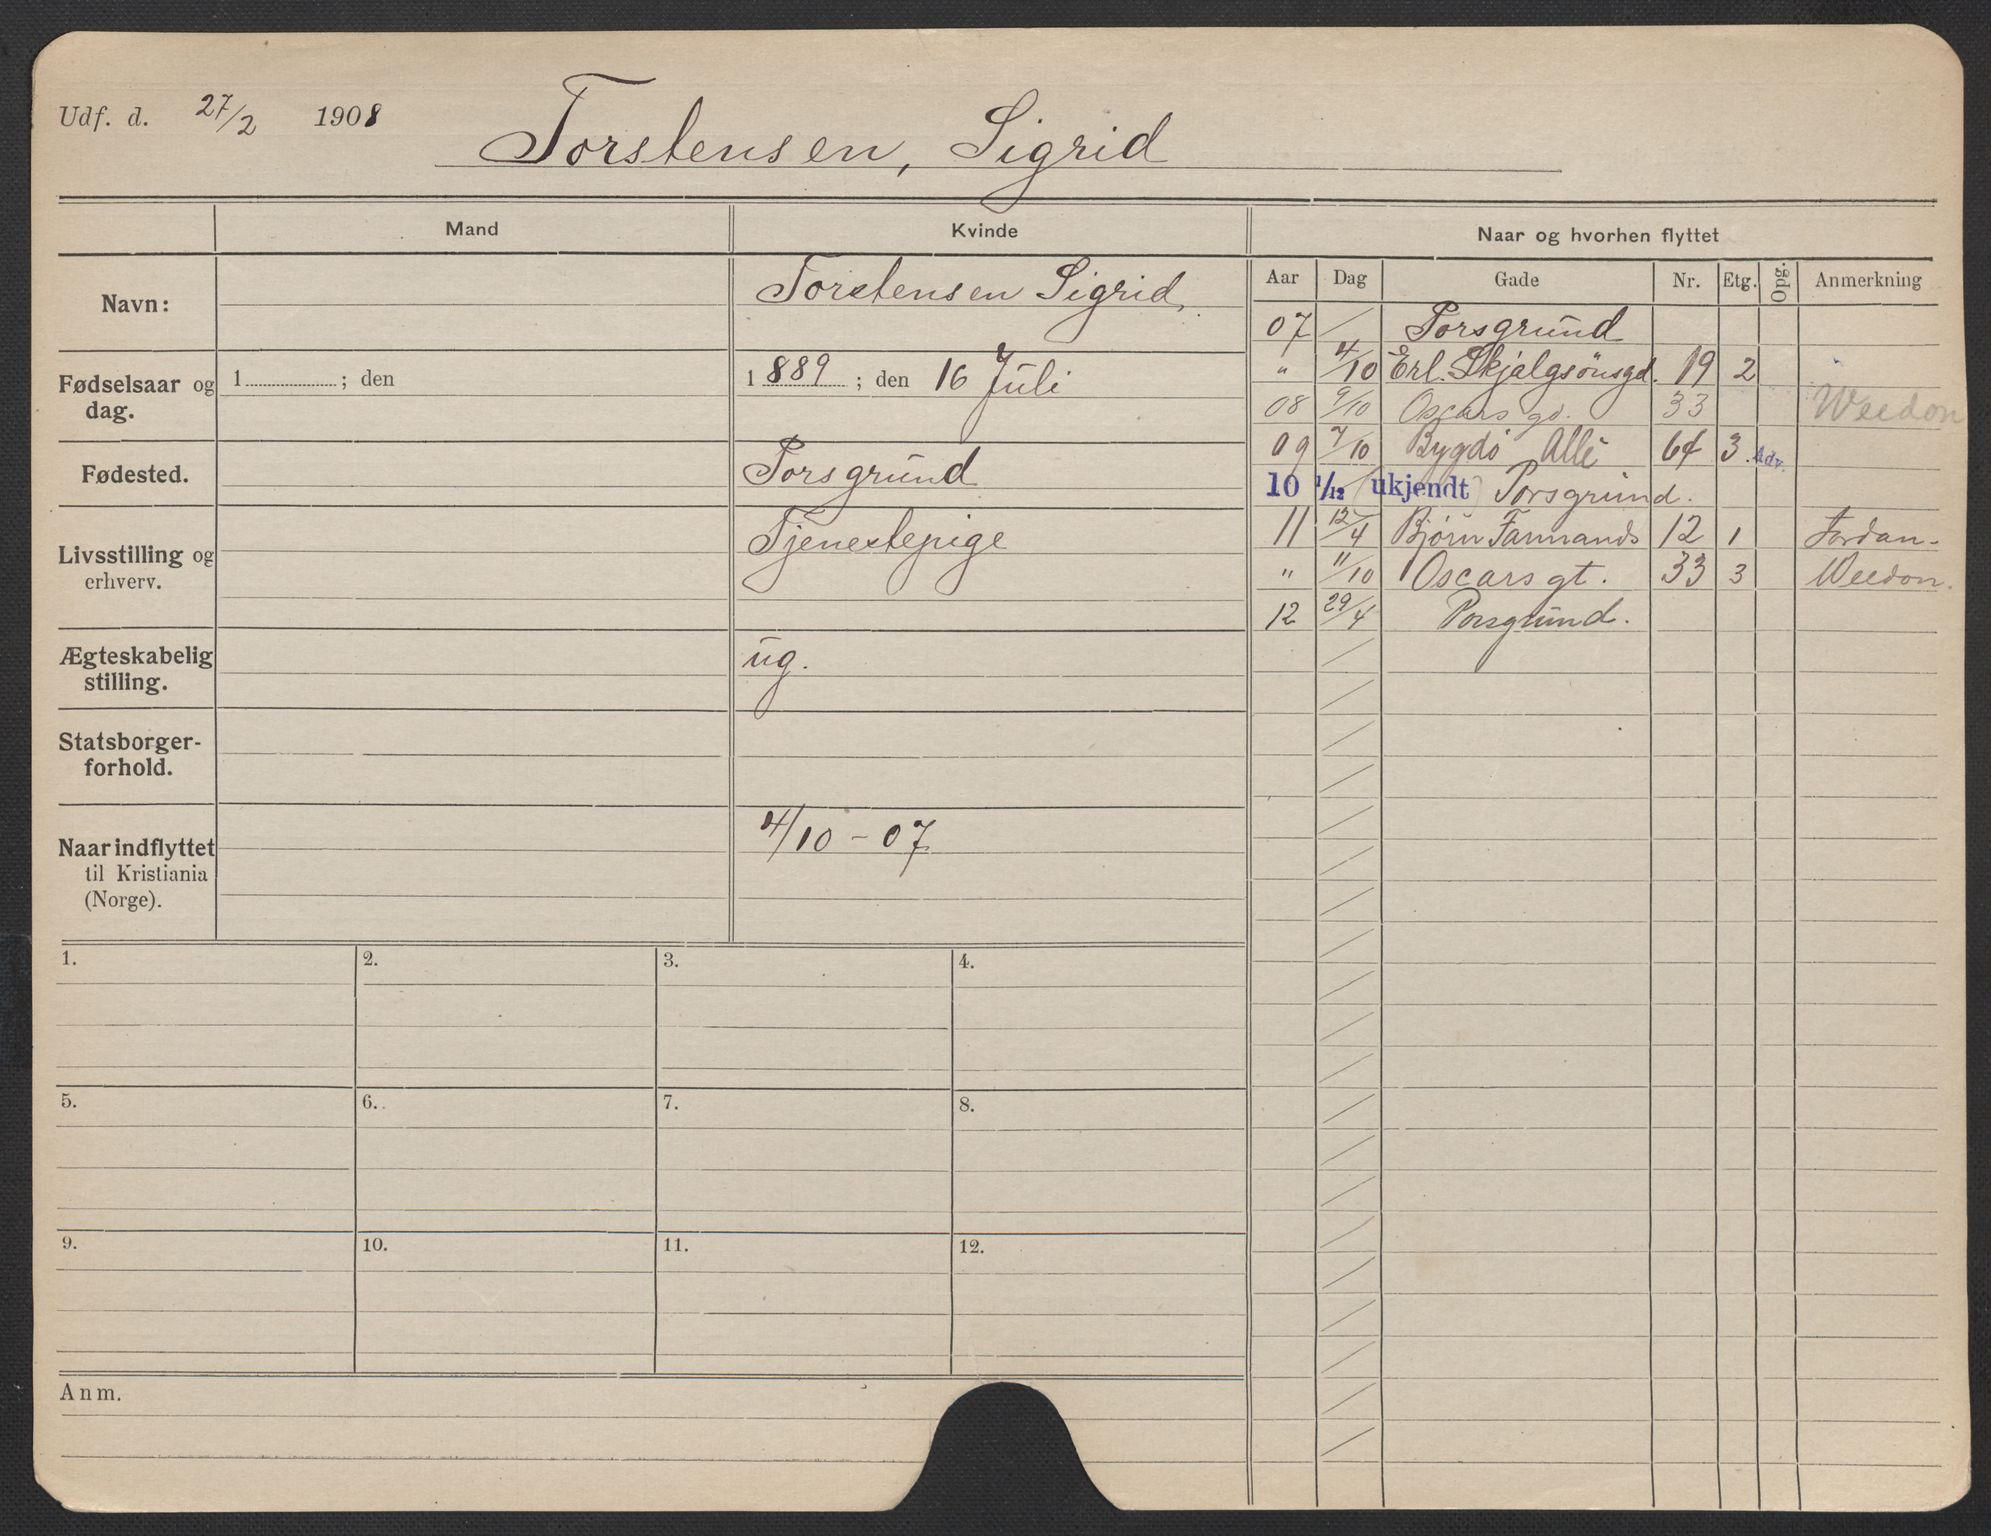 Udf. d. 27/2 1908
Torstensen, Sigrid
Mand
Kvinde
Navn:
Torstensen Sigrid
Fødselsaar og dag.
1 ; den
1889 ; den 16 Juli
Fødested.
Porsgrund
Livsstilling og erhverv.
Tjenestepige
Ægteskabelig stilling.
ug.
Statsborgerforhold.
Naar indflyttet til Kristiania (Norge).
4/10 - 07
Naar og hvorhen flyttet
Aar Dag Gade Nr. Etg. Opg. Anmerkning
07 / Porsgrund
" 4/10 Erl. Skjalgsönsgd. 19 2
08 9/10 Oscars gd. 33 Weedon
09 7/10 Bygdö Allé 64 3 Adv.
10 1/12 (ukjendt) Porsgrund.
11 12/4 Bjørn Farmands 12 1 Jordan.
" 11/10 Oscars gt. 33 3 Weedon.
12 29/4 Porsgrund.
1. 2. 3. 4.
5. 6. 7. 8.
9. 10. 11. 12.
Anm.